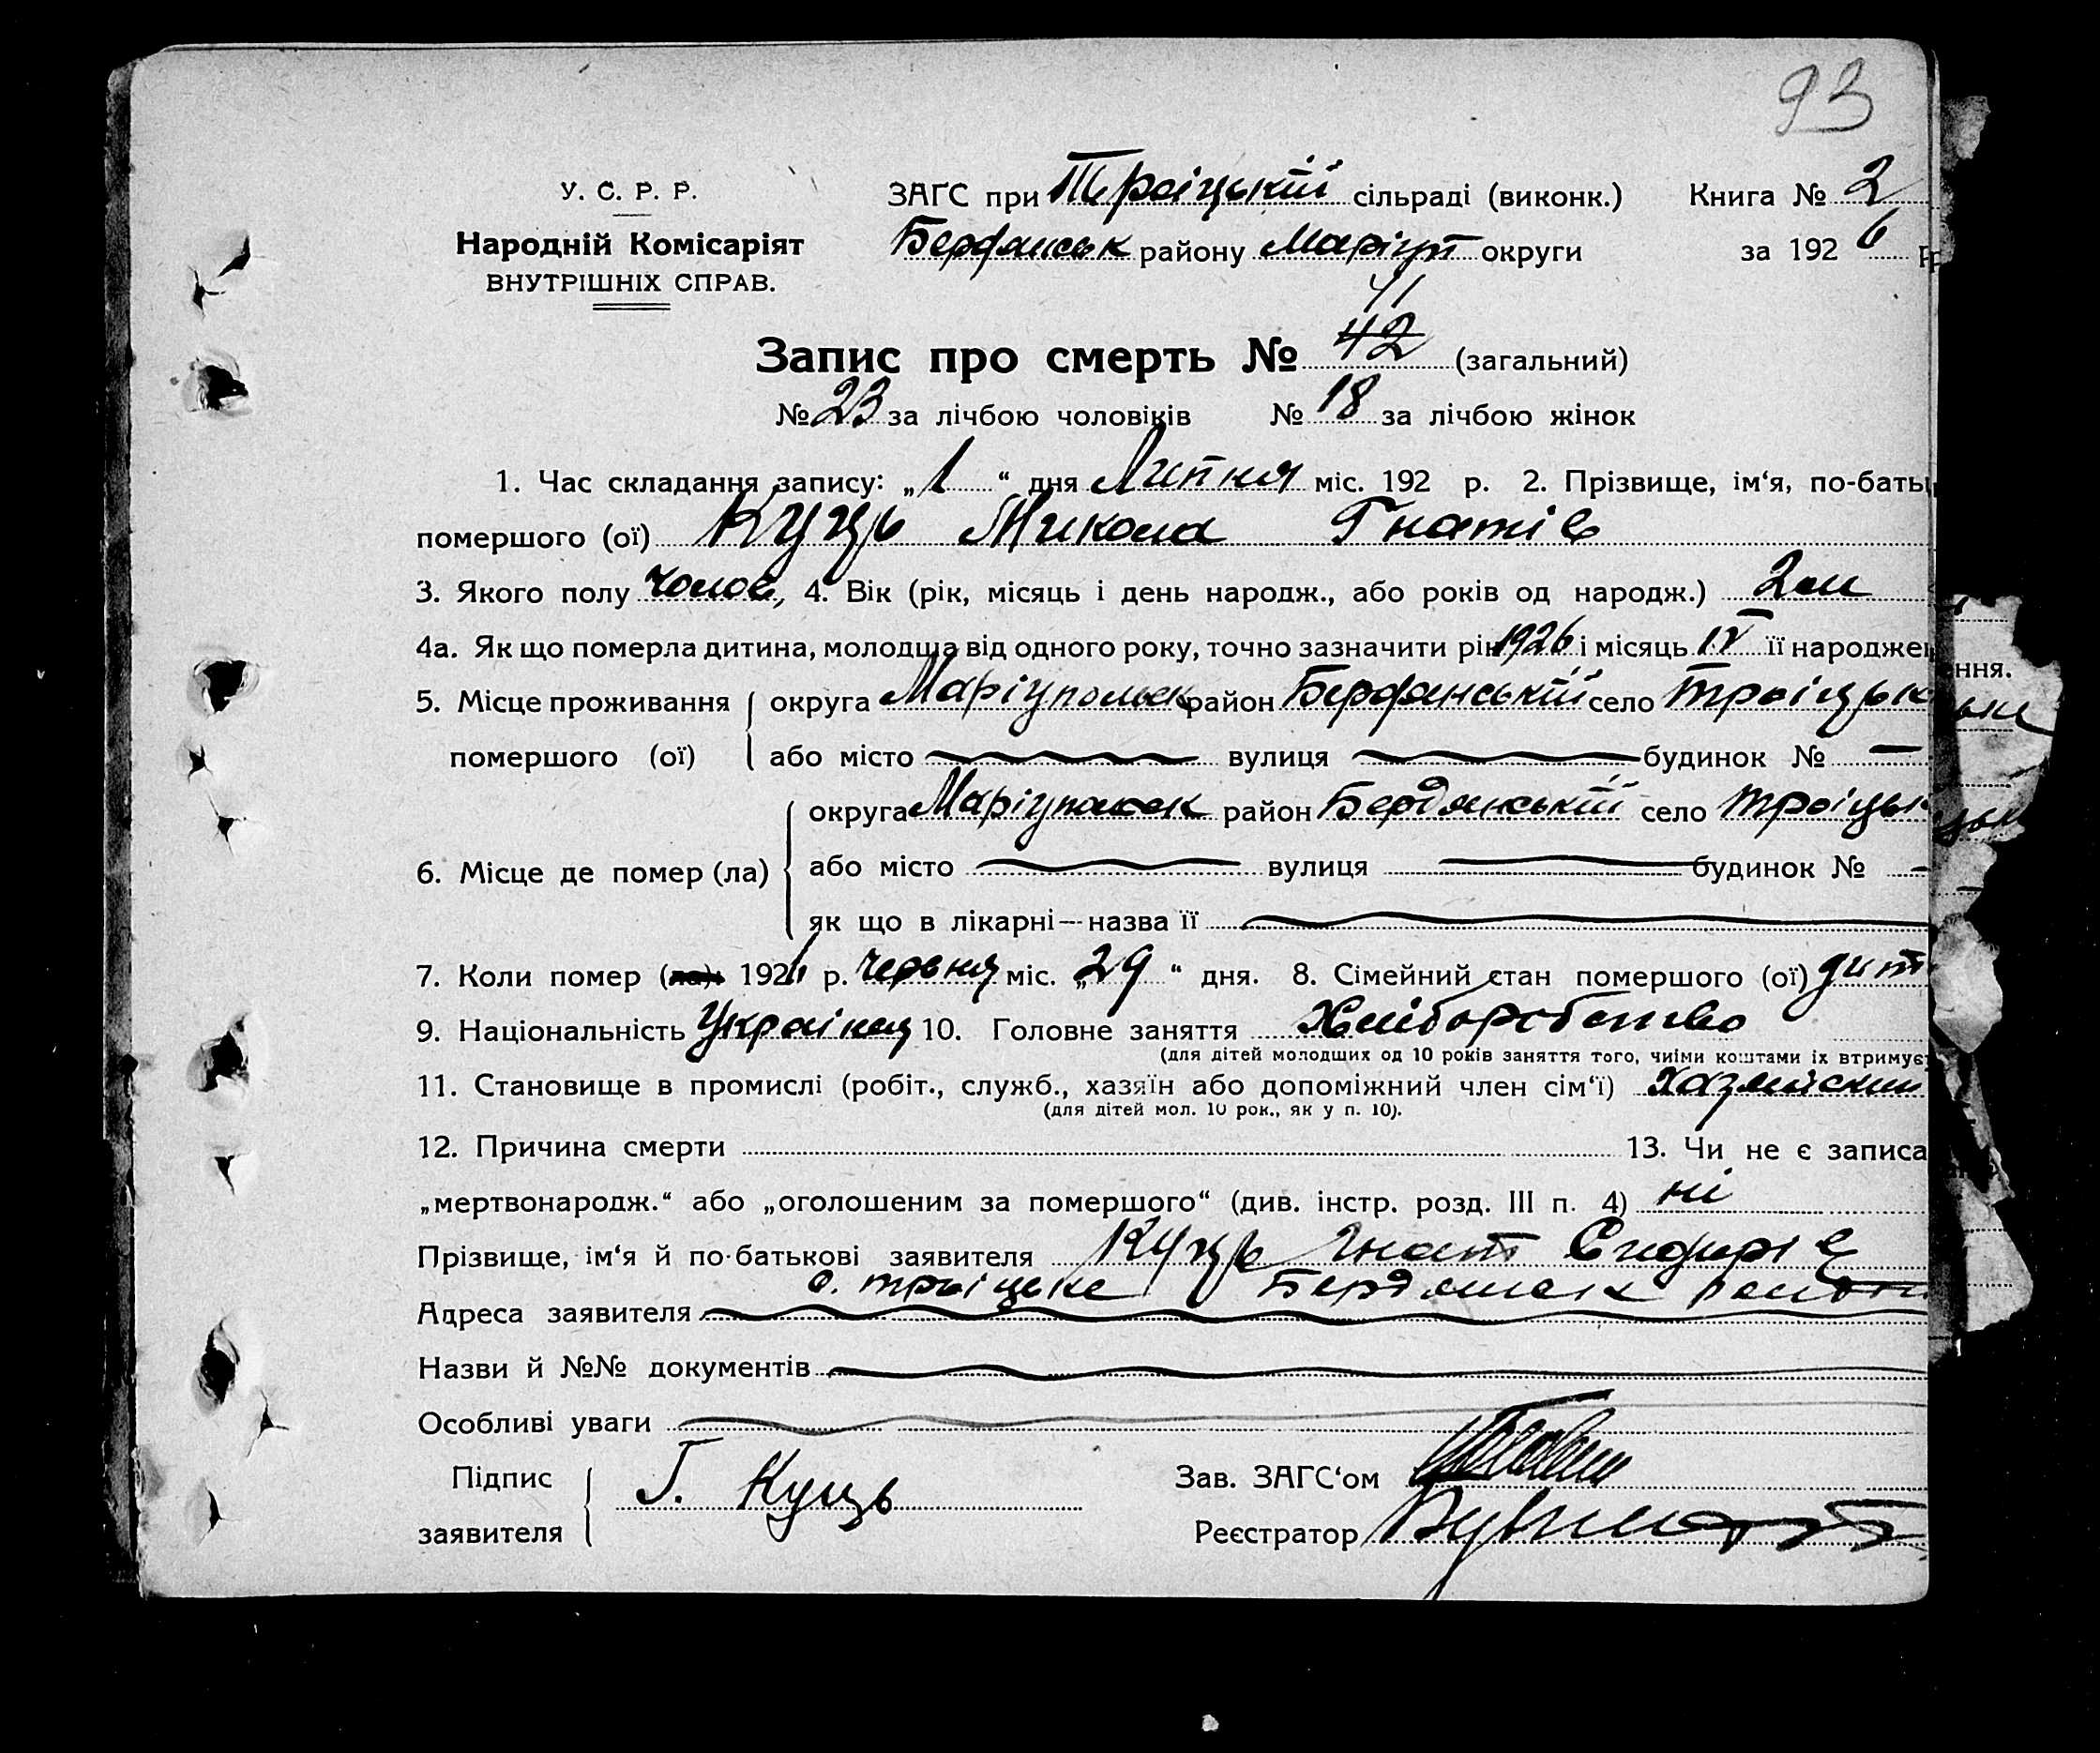 93
У. С. Р. Р. ЗАГС при Троіцькій сільраді (виконк.) Книга № 2
Народній Комісаріят Бердянськ району Маріуп округи за 1926 р
ВНУТРІШНІХ СПРАВ.
41
Запис про смерть № 42 (загальний)
№ 23 за лічбою чоловіків № 18 за лічбою жінок
1. Час складання запису: „1“ дня Липня міс. 192 р. 2. Прізвище, ім‘я, по-бать
помершого (ої) Куць Микола Гнатів
3. Якого полу чолов, 4. Вік (рік, місяць і день народж., або років од народж.) 2 м
4а. Як що померла дитина, молодша від одного року, точно зазначити рік 1926 і місяць IV її народжен
ння.
5. Місце проживання округа Маріупольськ район Бердянській село Троіцьк
помершого (ої) або місто вулиця будинок № —
округа Маріупольськ район Бердянській село Троіцьк
6. Місце де помер (ла) або місто вулиця будинок № —
як що в лікарні—назва її
7. Коли помер (ла) 1926 р. Червня міс. „29“ дня. 8. Сімейний стан помершого (ої) дит
9. Національність Українец 10. Головне заняття Хліборобство
(для дітей молодших од 10 років заняття того, чиїми коштами їх втримує
11. Становище в промислі (робіт., служб., хазяїн або допоміжний член сім‘ї)
(для дітей мол. 10 рок., як у п. 10).
12. Причина смерти 13. Чи не є записа
„мертвонародж.“ або „оголошеним за помершого“ (див. інстр. розд. III п. 4) ні
Прізвище, ім‘я й по-батькові заявителя Куць Гнат Сидорів
с. Троіцьке Бердянськ район
Адреса заявителя
Назви й №№ документів
Особливі уваги
Підпис Г. Куць Зав. ЗАГС‘ом
заявителя Реєстратор